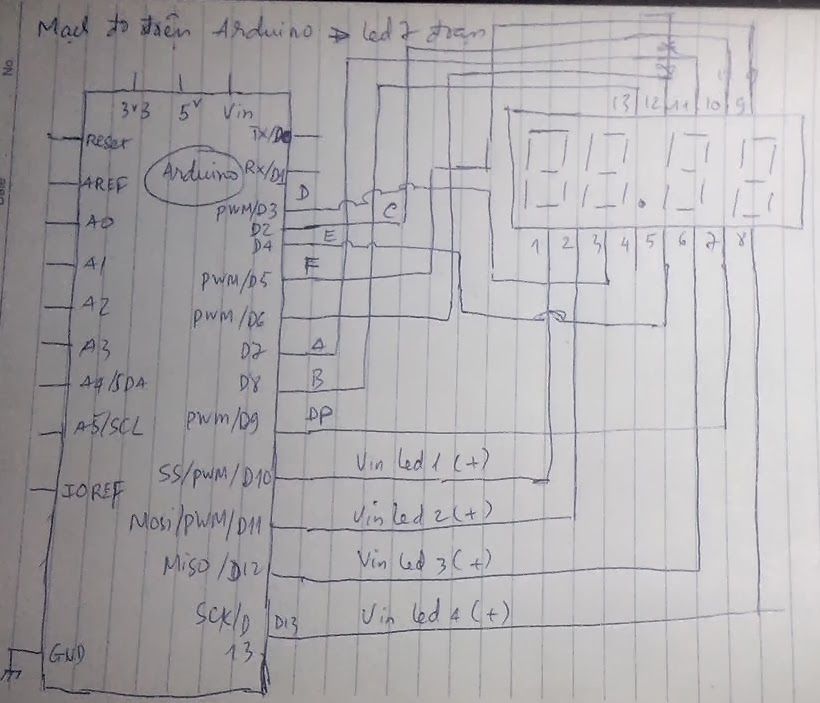 Mạch đo điện Arduino => led 7 đoạn
No
Date
3v3 5v Vin
Reset
AREF
A0
A1
A2
A3
A4/SDA
A5/SCL
IOREF
GND
Arduino
TX/D0
Rx/D1
PWM/D3 D
D2 C
D4 E
PWM/D5 F
PWM/D6
D7 A
D8 B
PWM/D9 DP
SS/PWM/D10 Vin led 1 (+)
Mosi/PWM/D11 Vin led 2 (+)
MISO/D12 Vin led 3 (+)
SCK/D D13 Vin led 4 (+)
13
13 12 11 10 9
1 2 3 4 5 6 7 8